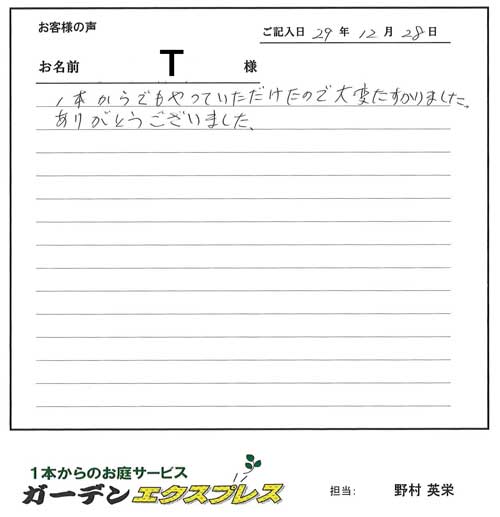 お客様の声
ご記入日 29 年 12 月 28 日
お名前 T 様
1本からでもやっていただけたので大変たすかりました。
ありがとうございました。
1本からのお庭サービス
ガーデンエクスプレス
担当: 野村 英栄